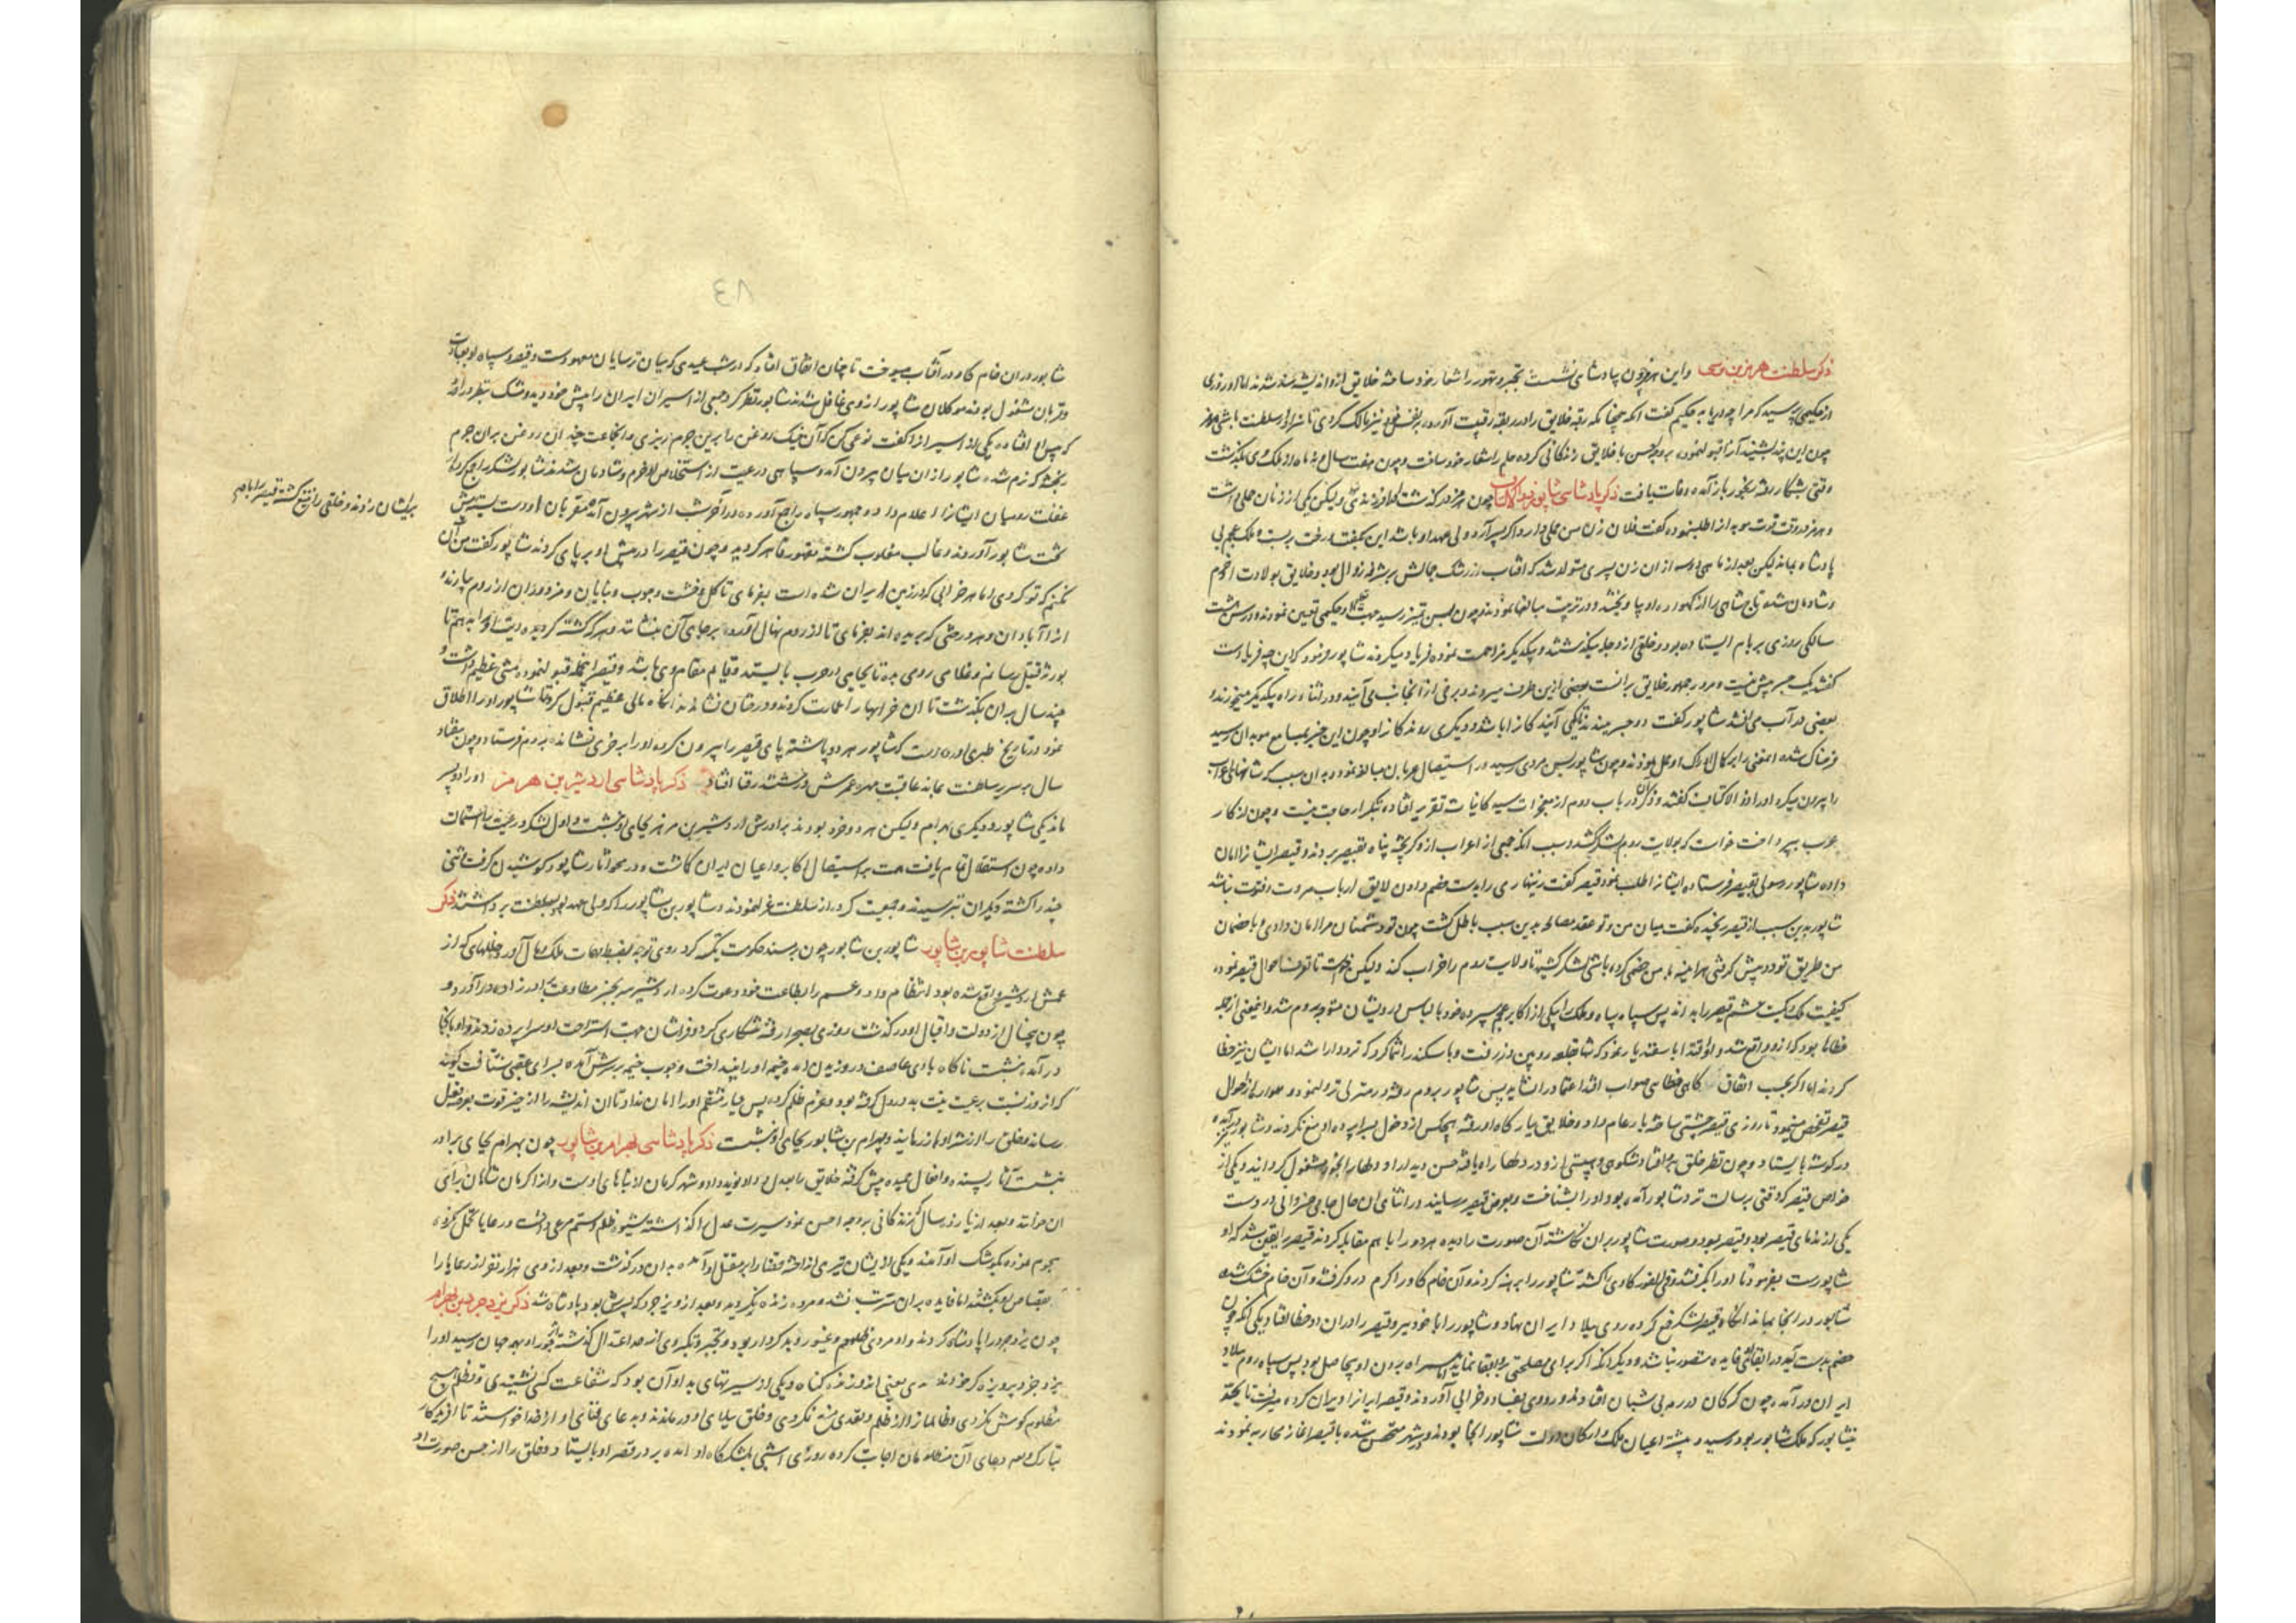 ذکر سلطنت هرمز بن نرسی واین هرمز چون بپادشاهی نشست تجبر وتهور را شعار خود ساخته خلایق ازو اندیشه مند شدند اما او روزی
از حکیمی پرسید که مرا چه دربابه حکیم گفت آنکه چنانکه رقبه خلایق را در ربقه رقیت آورده بر نفس خود نیز مالک گردی تا سزاوار سلطنت باشی هرمز
چون این پند بشنید آنرا قبول نموده بر وجه احسن با خلایق زندگانی کرده حلم را شعار خود ساخت وچون هفت سال و نه ماه از ملک وی بگذشت
وقتی بشکار رفته رنجور باز آمده وفات یافت ذکر پادشاهی شاپور ذو الاکتاف چون هرمز درگذشت اورا فرزندی نبود ولیکن یکی از زنان حملی داشت
وهرمز در وقت فوت موبدانرا طلبنموده گفت فلان زن من حملی دارد اگر پسر آرد ولی عهد او باشد این بگفت ورخت بربست وملک عجم بی
پادشاه بماند لیکن بعد از ماهی از ان زن پسری متولد شد که آفتاب از رشک جمالش بر شرفه زوال بود وخلایق بولادت او خرم
وشادمان شده تاج شاهی را از گهواره او بیاویختند ودر تربیت مبالغها نمودند وچون بسن تمیز رسید جهت تعلیم او حکیمی تعیین نمودند ودر سن هشت
سالگی روزی بر بام ایستاده بود وخلقی از دجله میگذشتند ویکدیگر مزاحمت نموده فریاد میکردند شاپور فرمود که این چه فریادست
گفتند یک جسر بیش نیست ومرور جمهور خلایق بر آنست بعضی ازین طرف میروند وبرخی از آنجانب می آیند ودر اثناء راه بیکدیگر میخورند و
بعضی در آب می افتند شاپور گفت دو جسر ببندند تا یکی آیندگانرا باشد ودیگری روندگانرا وچون این خبر بمسامع موبدان رسید
فرحناک شده اینمعنی را بر کمال ادراک او حمل نمودند وچون شاپور بسن مردی رسید در استیصال عربان مبالغه نمود وبدان سبب که شانهای اعراب
را بیرون میکرد اورا ذو الاکتاف گفتند وذکر آن در باب دوم از معجزات سید کاینات تقریر افتاده بتکرار حاجت نیست وچون از کار
عرب بپرداخت خواست که بولایت روم لشکر کشد وسبب آنکه جمعی از اعراب ازو گریخته پناه بقیصر بردند وقیصر ایشانرا امان
داده شاپور رسولی بقیصر فرستاده ایشانرا طلب نمود قیصر گفت زنهاری را بدست خصم دادن لایق ارباب مروت وفتوت نباشد
شاپور بدین سبب از قیصر رنجیده گفت میان من وتو عقد مصالحه بدین سبب باطل گشت چون تو دشمنان مرا امان دادی با خصمان
من طریق تودد پیش گرفتی هر آینه با من خصمی کرده باشی لشکر کشیده تا ولایت روم را خراب کند ولیکن خواست تا تعرف احوال قیصر نموده
کیفیت ملک وکمیت حشم قیصر را بداند پس سپاه وملک را بیکی از اکابر عجم سپرده خود با لباس درویشان متوجه روم شد واینمعنی از جمله
خطاها بود که ازو واقع شد
کردند اما اگر بحسب اتفاق گاهی خطای صواب افتد اعتماد را نشاید پس شاپور بروم رفته ودر منزلی نزول نمود وهمواره از احوال
قیصر تفحص مینمود تا روزی قیصر جشنی ساخته بار عام داد وخلایق ببارگاه او رفته هیچکس از دخول بسراپرده او منع نکردند وشاپور نیز در آمده
در گوشه بایستاد وچون نظر خلق برو افتاد شکوهی وهیبتی ازو در دلها راه یافته حسن دیدار او دلها را بخود مشغول گردانید ویکی از
خواص قیصر که وقتی برسالت نزد شاپور آمده بود اورا بشناخت وبعرض قیصر رسانید در اثنای آن حال جامی خسروانی در دست
یکی از ندمای قیصر بود وصورت شاپور بران نگاشته آن صورت را دیده هر دو را با هم مقابله کردند قیصر را یقین شد که او
شاپورست بفرمود تا اورا بگرفتند وفی الفور گاوی را کشته شاپور را برهنه کردند وآن خام گاو را گرم درو گرفتند وآن خام خشک شده
شاپور در انجا بماند آنگاه قیصر لشکر جمع کرده روی ببلاد ایران نهاد وشاپور را با خود ببرد وقیصر را دران دو خطا افتاد یکی آنکه چون
خصم بدست آید در ابقاش فایده متصور نباشد ودیگر آنکه اگر برای مصلحتی ابقا نمایند همراه بردن او بیحاصل بود پس سپاه روم ببلاد
ایران در آمده چون گرگان در رمه بی شبان افتادند وروی بفساد وخرابی آوردند وقیصر ایرانرا ویران کرده میرفت تا بحدّ
نیشابور که ملک شاپور بود رسید وبیشتر اعیان ملک وارکان دولت شاپور آنجا بودند ودر شهر متحصن شده با قیصر آغاز محاربه نمودند
۸۳
شاپور دران خام گاو در آفتاب میسوخت تا چنان اتفاق افتاد که در شب عیدی که میان ترسایان معهودست وقیصر وسپاه او بعبادت
وقربان مشغول بودند موکلان شاپور از وی غافل شدند شاپور نظر کرد جمعی از اسیران ایران را پیش خود دید ومشک بنظر در آمد
که پس او افتاده یکی از اسیرانرا گفت نوعی کن که آن خیک روغن را برین چرم ریزی وآنجماعت چندان روغن بران چرم
ریختند که نرم شد وشاپور از ان میان بیرون آمد وسپاهی ورعیت از استخلاص او خرم وشادمان شدند شاپور لشکر را جمع کرد واز
غفلت رومیان ایشانرا اعلام داد وجمهور سپاه را جمع آورده در آخر شب از شهر بیرون آمده
برایشان زدند وخلقی را بتیغ کشته قیصر را با جمعی
مقربان او دست بسته پیش
تخت شاپور آوردند وغالب مغلوب گشته مقهور قاهر گردید وچون قیصر را در پیش او بر پای کردند شاپور گفت من آن
نکنم که تو کردی اما هر خرابی که در زمین ایران شده است بفرمای تا گل وخشت وچوب وبنایان ومزدوران از روم بیارند و
انرا آبادان وهر درختی که بریده اند بفرمای تا از روم نهال آورده بر جای آن بنشانند وهر که کشته گردیده دیت او را بدهم تا
بورثه قتیل رسانم وغلامی رومی بده تا بجای او حرب بایستد وقایم مقام وی باشد وقیصر آنجمله قبول نمود ومنتی عظیم داشت و
چند سال بران بگذشت تا آن خرابیها را عمارت کردند ودرختان نشاندند آنگاه مالی عظیم قبول کرد تا شاپور اورا اطلاق
نمود ودر تاریخ طبری آورده است که شاپور هر دو پاشنه پای قیصر را بیرون کرده اورا بر خری نشانده بروم فرستاد وچون هفتاد
سال بر سریر سلطنت بماند عاقبت مهره عمرش در ششدر فنا افتاد ذکر پادشاهی اردشیر بن هرمز اورا دو پسر
ماند یکی شاپور ودیگری بهرام ولیکن هر دو خرد بودند برادرش اردشیر بن هرمز بجای او نشست واول لشکر ورعیت را استمالت
داده چون استقلال تمام یافت همت بر استیصال اکابر واعیان ایران گماشت ودر محو آثار شاپور کوشیدن گرفت تنی
چند را کشته دیگران بترسیدند وجمعیت کرده از سلطنت عزل نمودند وشاپور بن شاپور را که ولی عهد بود بسلطنت برداشتند ذکر
سلطنت شاپور بن شاپور شاپور بن شاپور چون بر مسند حکومت تکیه کرد روی توجه بضبط مهمات ملک ومال آورد وخللهای که از
عمش اردشیر واقع شده بود انتظام داد وعم را بطاعت خود دعوت کرد اردشیر سر بچنبر مطاوعت برادر زاده در آورد و
چون پنج سال از دولت واقبال او درگذشت روزی بصحرا رفته شکاری کرد وفراشان جهت استراحت او سراپرده زدند واو بآنجا
در آمده بنشست ناگاه بادی عاصف در وزیدن آمد وخیمه اورا بینداخت وچوب خیمه بر سرش آمده بسرای عقبی شتافت گویند
که آنروز نسبت برعیت نیت بد در دل گرفته بود وعزم ظلم کرده پس دیار منتقم اورا امان نداد تا آن اندیشه را از حیز قوت بعرصه فعل
رساند وخلق را از شر او باز رهانید وبهرام بن شاپور بجای او نشست ذکر پادشاهی بهرام بن شاپور چون بهرام بجای برادر
بنشست آثار پسندیده وافعال حمیده پیش گرفته خلایق را بعدل وداد نوید داد وشهر کرمان از بناهای اوست واورا کرمان شاهان برای
آن خوانند وبعد از یازده سال که زندگانی بر وجه احسن نمود سیرت عدل را گذاشته شیوه ظلم وستم مرعی داشت ورعایا تحمل نکرده
هجوم نموده بکوشک او آمدند ویکی از ایشان تیری انداخته قضا را بر مقتل او آمده بدان درگذشت وبعد از وی هزار نفر از رعایا را
بقصاص او بکشتند اما فایده بران مترتب نشد ومرده زنده نگردید وبعد ازو یزدجرد که پسرش بود پادشاه شد ذکر یزدجرد بن بهرام
چون یزدجرد را پادشاه کردند واو مردی ظلوم وغیور وبد کردار بود وتجبر وتکبر وی از حد اعتدال گذشته جور او بهمه جهان رسید اورا
یزدجرد بزه گر خوانند یعنی اندوزنده گناه ویکی از سیرتهای بد او آن بود که شفاعت کس نشنیدی وتظلم هیچ
مظلوم گوش نکردی وظالمانرا از ظلم وتعدی منع نکردی وخلق ببلای او درماندند وبدعای فنای او از خدا خواستند تا آفریدگار
تبارک وتعالی دعای آن مظلومان اجابت کرده روزی اسبی بلشکرگاه او آمده بر در قصر او بایستاد وخلق را از حسن صورت او